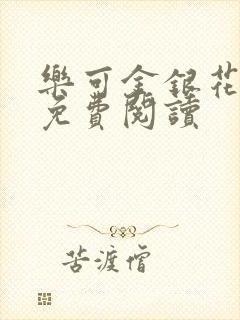 樂可金銀花
免費閱讀
苦渡僧